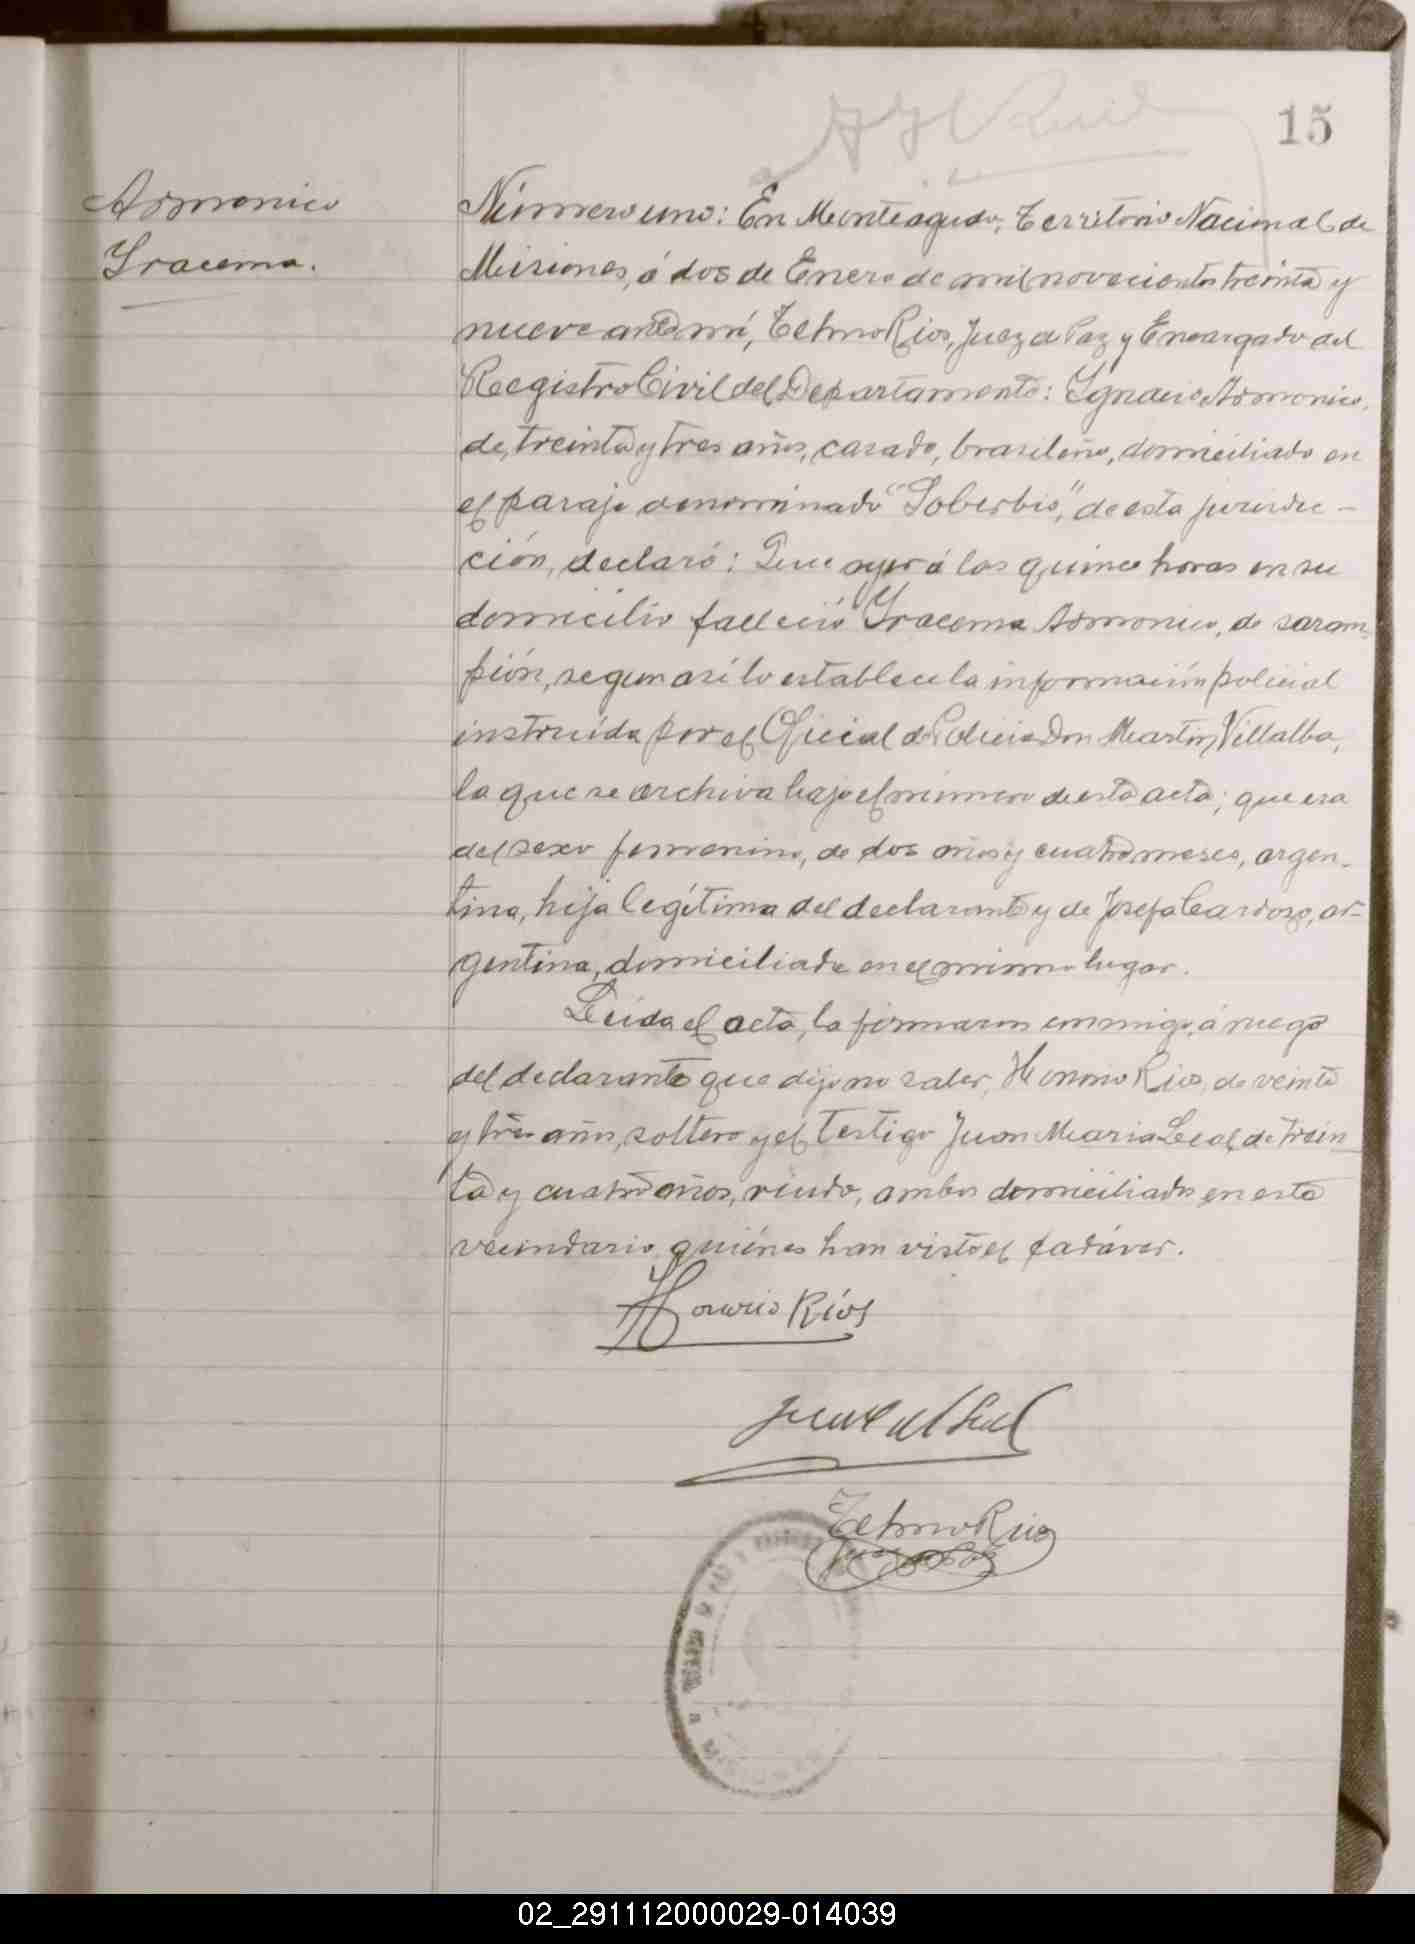 15
Armonico
Yracema.
Número uno: En Monteagudo, Territorio Nacional de
Misiones, á dos de Enero de mil novecientos treinta y
nueve ante mí, Telmo Rios, Juez de Paz y Encargado del
Registro Civil del Departamento: Ygnacio Armonico,
de treinta y tres años, casado, brasileño, domiciliado en
el paraje denominado "Soberbio," de esta jurisdic-
ción, declaró: Que ayer á las quince horas en su
domicilio falleció Yracema Armonico, de saram-
pión, segun asi lo establece la información policial
instruída por el Oficial de Policia Don Martin Villalba,
la que se archiva bajo el número de esta acta; que era
del sexo femenino, de dos años y cuatro meses, argen-
tina, hija legítima del declarante y de Josefa Cardozo, ar-
gentina, domiciliada en el mismo lugar.
Leída el acta, la firmaron conmigo, á ruego
del declarante que dijo no saber, Honorio Rios, de veinte
y tres años, soltero y el testigo Juan Maria Leal, de trein
ta y cuatro años, viudo, ambos domiciliados en este
vecindario, quiénes han visto el cadáver.
Honorio Ríos
Juan M Leal
Telmo Rios
Juez de Paz
MISIONES
02_291112000029-014039